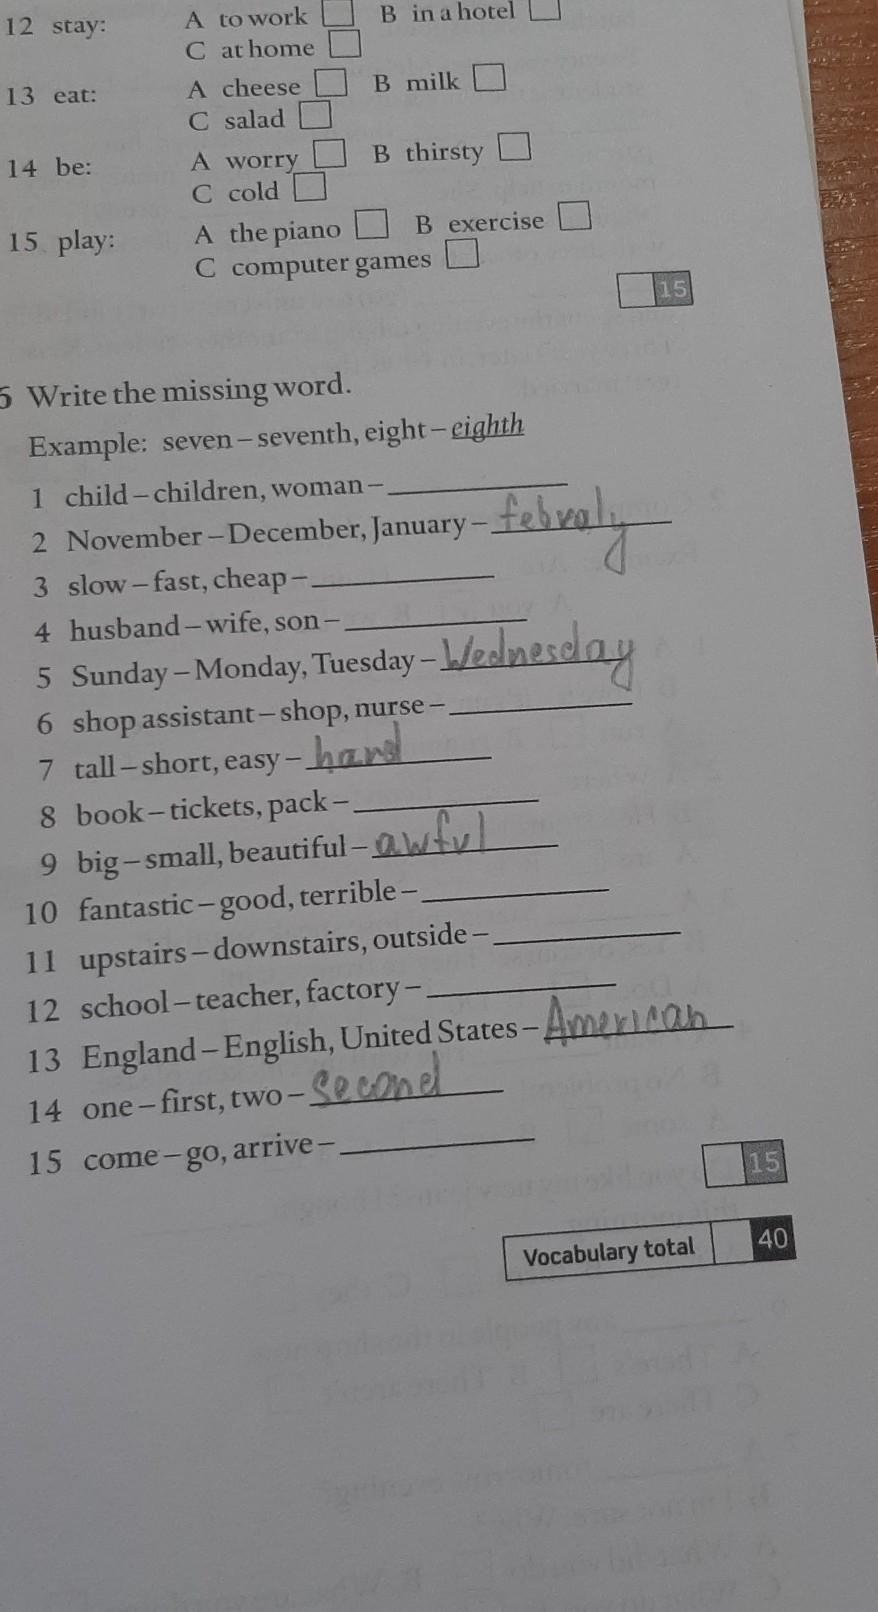 12 stay: A to work B in a hotel
C at home
13 eat: A cheese B milk
C salad
14 be: A worry B thirsty
C cold
15 play: A the piano B exercise
C computer games
15
6 Write the missing word.
Example: seven – seventh, eight – eighth
1 child – children, woman –
2 November – December, January – febraly
3 slow – fast, cheap –
4 husband – wife, son –
5 Sunday – Monday, Tuesday – Wednesday
6 shop assistant – shop, nurse –
7 tall – short, easy – hard
8 book – tickets, pack –
9 big – small, beautiful – awful
10 fantastic – good, terrible –
11 upstairs – downstairs, outside –
12 school – teacher, factory –
13 England – English, United States – American
14 one – first, two – second
15 come – go, arrive –
15
Vocabulary total 40